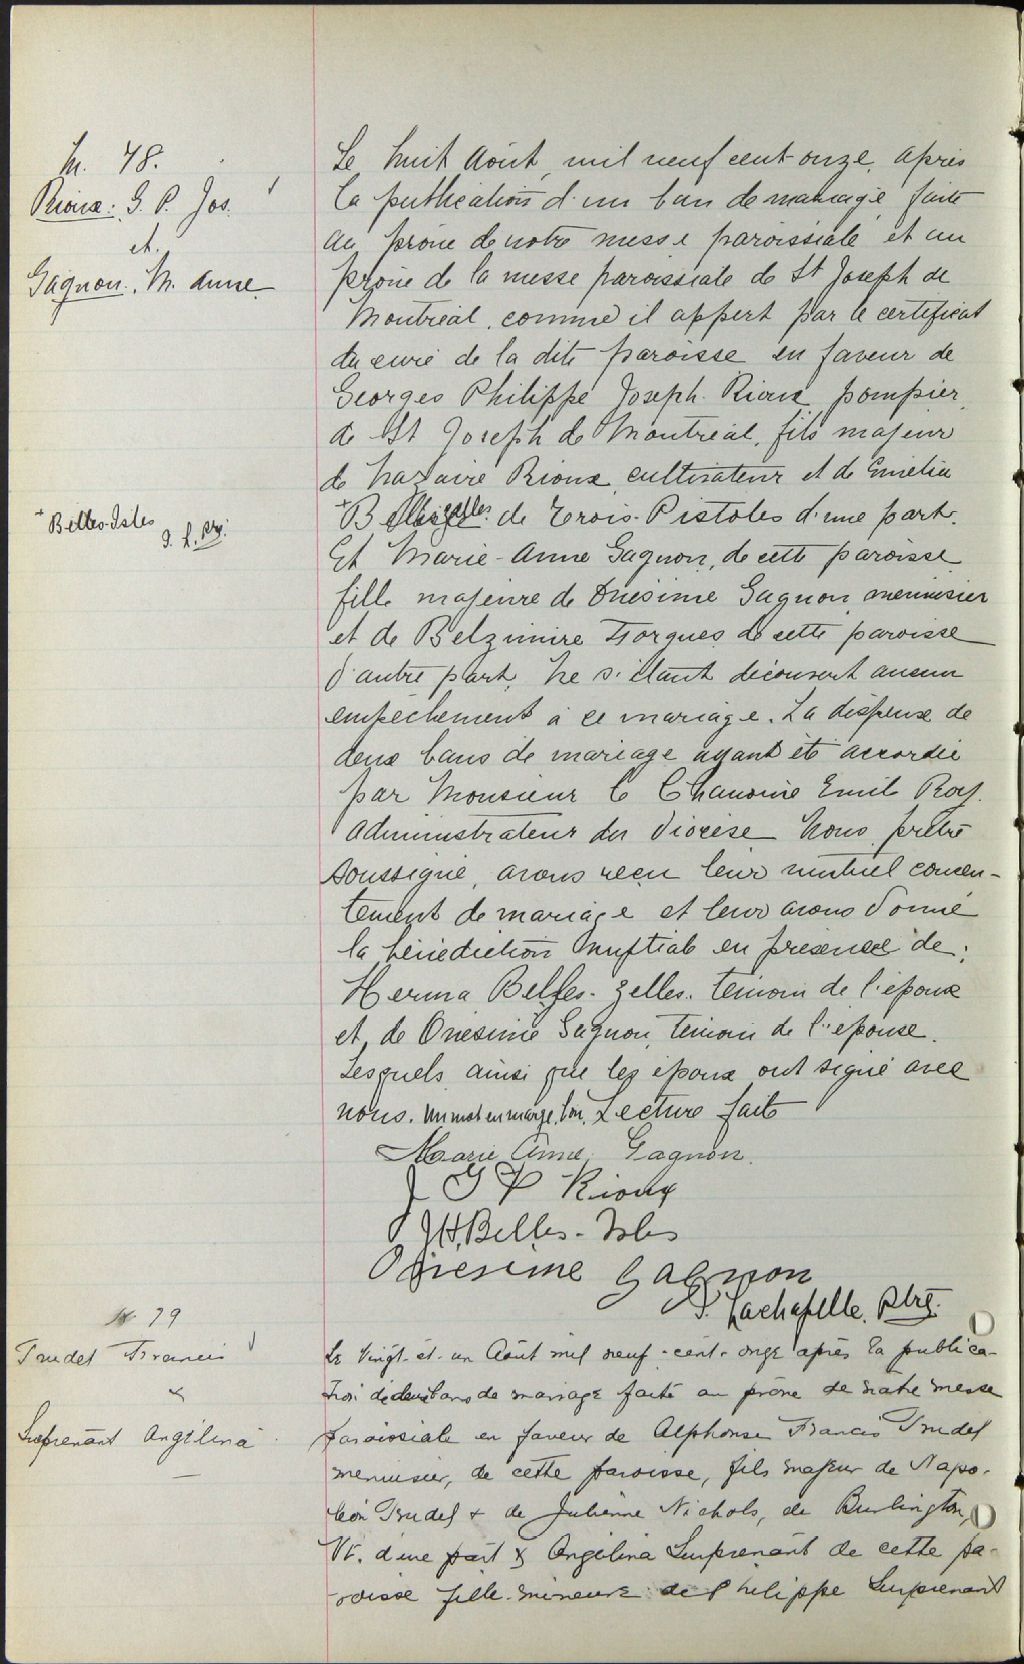 M. 78.
Rioux: G. P. Jos.
et
Gagnon. M. Anne
Le huit Août, mil neuf cent onze, après
la publication d'un ban de mariage faite
au prône de notre messe paroissiale et au
prône de la messe paroissiale de St Joseph de
Montréal, comme il appert par le certificat
du curé de la dite paroisse en faveur de
Georges Philippe Joseph Rioux pompier,
de St Joseph de Montréal, fils majeur
de Nazaire Rioux cultivateur et de Emélia
+ Belles-Isles
J. L. ptr.
+ de Trois-Pistoles d'une part.
Et Marie-Anne Gagnon, de cette paroisse
fille majeure de Onésime Gagnon menuisier
et de Belzimire Forgues de cette paroisse
d'autre part, Ne s'étant découvert aucun
empêchement à ce mariage. La dispense de
deux bans de mariage ayant été accordée
par Monsieur le Chanoine Emile Roy
administrateur du diocèse Nous, prêtre
soussigné, avons reçu leur mutuel consen-
tement de mariage et leur avons donné
la bénédiction nuptiale en présence de;
Herma Belles-Zelles. témoin de l'époux
et de Onésime Gagnon, témoin de l'épouse.
Lesquels ainsi que les époux ont signé avec
nous. Un mot en marge, bon, Lecture faite
Marie Anne Gagnon.
J G P Rioux
J H. Belles-Isles
Onesime Gagnon
J. Lachapelle. Ptre.
M 79
Trudel Francis
&
Surprenant Angélina
Le Vingt-et-un Août mil neuf-cent-onze après la publica-
tion de deux bans de mariage faite au prône de notre messe
paroissiale en faveur de Alphonse Francis Trudel
menuisier, de cette paroisse, fils majeur de Napo-
léon Trudel & de Julienne Nichols, de Burlington,
Vt. d'une part & Angélina Surprenant de cette pa-
-roisse fille-mineure de Philippe Surprenant